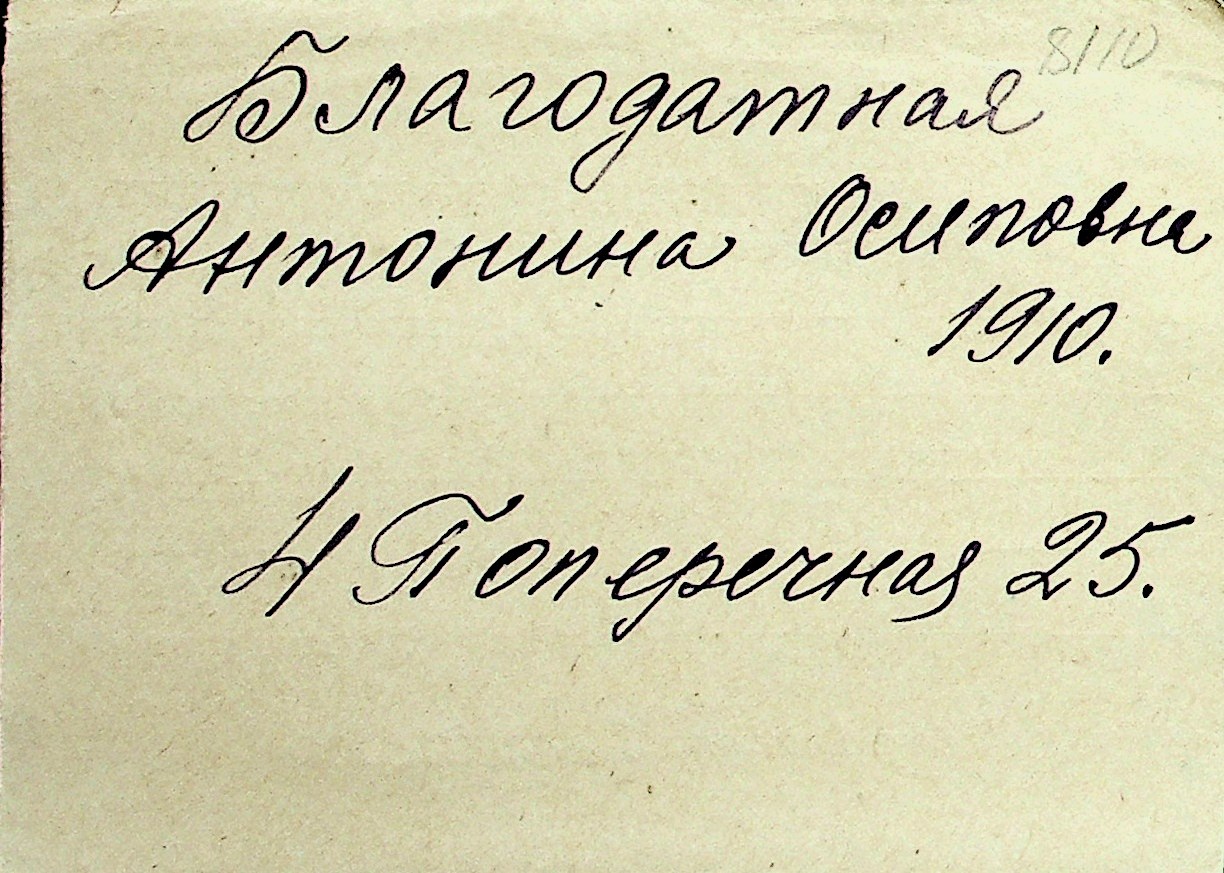 8/10
Благодатная
Антонина Осиповна
1910.
4 Поперечная 25.